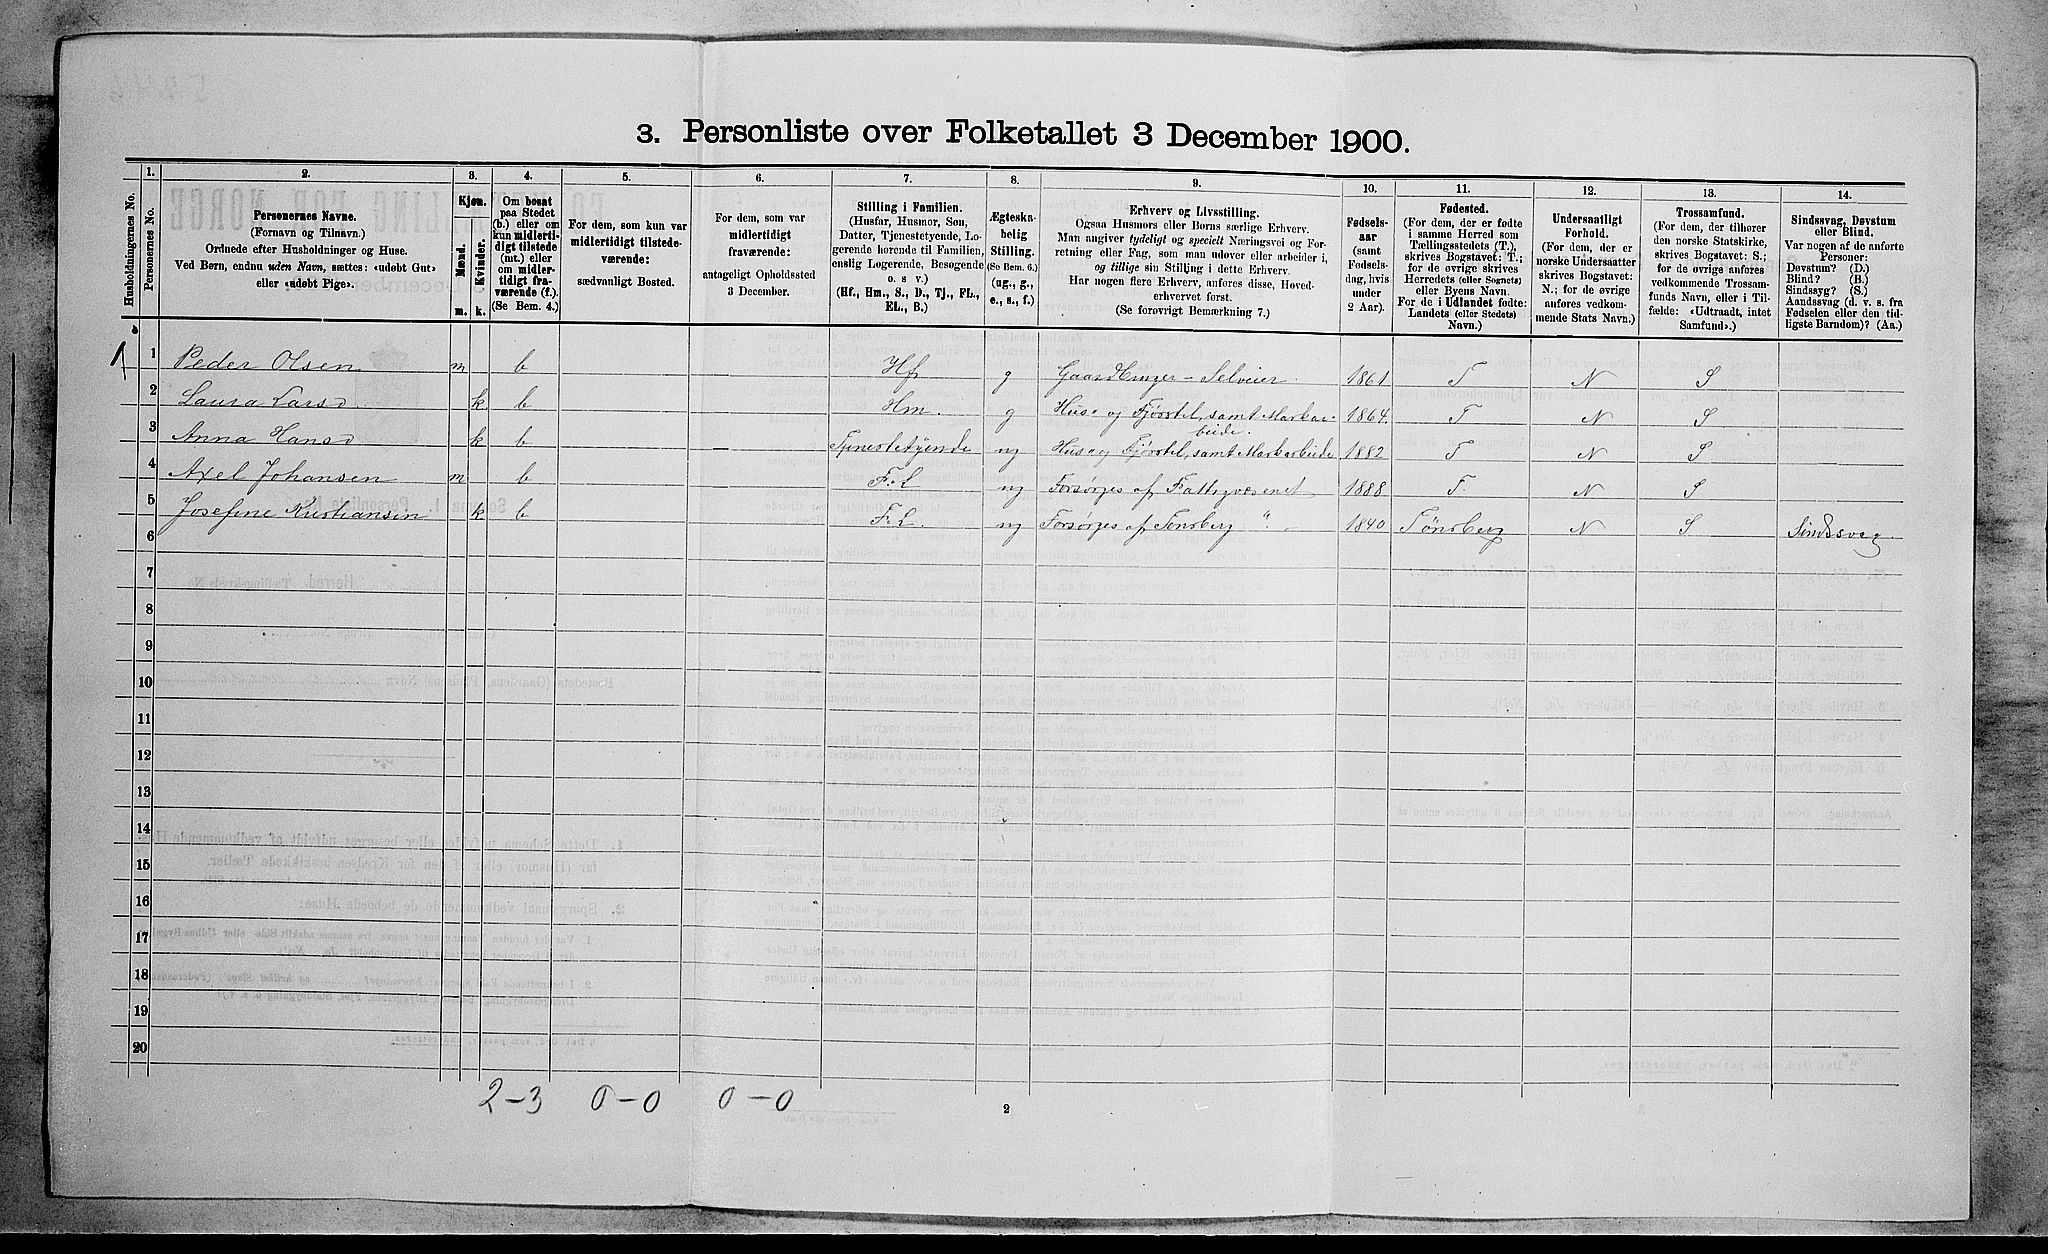 3. Personliste over Folketallet 3 December 1900.
Husholdningernes No.
1.
Personernes No.
2.
Personernes Navne.
(Fornavn og Tilnavn.)
Ordnede efter Husholdninger og Huse.
Ved Børn, endnu uden Navn, sættes: «udøbt Gut»
eller «udøbt Pige».
3.
Kjøn.
Mænd.
Kvinder.
m.
k.
4.
Om bosat
paa Stedet
(b.) eller om
kun midlerti-
digt tilstede
(mt.) eller
om midler-
tidigt fra-
værende (f.).
(Se Bem. 4.)
5.
For dem, som kun var
midlertidigt tilstede-
værende:
sædvanligt Bosted.
6.
For dem, som var
midlertidigt
fraværende:
antageligt Opholdssted
3 December.
7.
Stilling i Familien.
(Husfar, Husmor, Søn,
Datter, Tjenestetyende, Lo-
gerende hørende til Familien,
enslig Logerende, Besøgende
o. s v.)
(Hf., Hm., S., D., Tj., FL.,
EL., B.)
8.
Ægteska-
belig
Stilling.
(Se Bem. 6.)
(ug., g.,
e., s., f.)
9.
Erhverv og Livsstilling.
Ogsaa Husmors eller Børns særlige Erhverv.
Man angiver tydeligt og specielt Næringsvei og For-
retning eller Fag, som man udøver eller arbeider i,
og tillige sin Stilling i dette Erhverv.
Har nogen flere Erhverv, anføres disse, Hoved-
erhvervet først.
(Se forøvrigt Bemærkning 7.)
10.
Fødsels-
aar
(samt
Fødsels-
dag, hvis
under
2 Aar).
11.
Fødested.
(For dem, der er fødte
i samme Herred som
Tællingsstedets (T.),
skrives Bogstavet: T.;
for de øvrige skrives
Herredets (eller Sognets)
eller Byens Navn.
For de i Udlandet fødte:
Landets (eller Stedets)
Navn.)
12.
Undersaatligt
Forhold.
(For dem, der er
norske Undersaatter
skrives Bogstavet:
N.; for de øvrige
anføres vedkom-
mende Stats Navn.)
13.
Trossamfund.
(For dem, der tilhører
den norske Statskirke,
skrives Bogstavet: S.;
for de øvrige anføres
vedkommende Trossam-
funds Navn, eller i Til-
fælde: «Udtraadt, intet
Samfund».)
14.
Sindssvag, Døvstum
eller Blind.
Var nogen af de anførte
Personer:
Døvstum? (D.)
Blind? (B.)
Sindssyg? (S.)
Aandssvag (d. v. s. fra
Fødselen eller den tid-
ligste Barndom)? (Aa.)
1 1 Peder Olsen m b Hf g Gaardbruger – Selveier. 1861 T N S
2 Laura Larsd k b Hm. g Hus- og Fjøsstel, samt Markar-
beide. 1864. T N S
3 Anna Hansd k b Tjenestetyende ug Hus og Fjøsstel, samt Markarbeide 1882 T N S
4 Axel Johansen m b F. L ug Forsørges af Fattigvæsenet 1888 T. N S
5 Josefine Kristiansen k b F. L. ug Forsørges af Tønsberg " 1840 Tønsberg N S Sindssvag
6
7
8
9
10
11
12
13
14
15
16
17
18
19
20
2–3 0–0 0–0
2